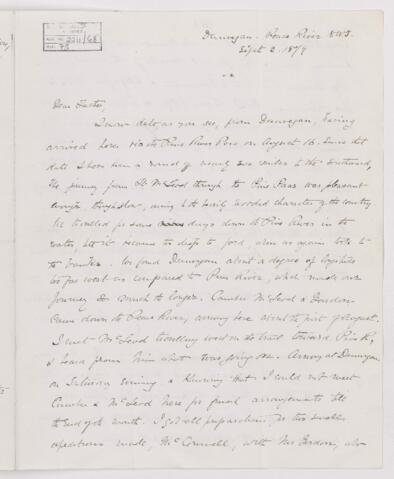 2211/68
75
Dunvegan. Peace River N.W.T.
Sept 2. 1879
Dear Father,
I now date, as you see, from Dunvegan, having
arrived here via the Pine River Pass on August 16. Since that
date I have been a round of nearly two miles to the southward,
The journey from Ft McLeod through to Pine Pass was pleasant
enough though slow, owing to the heavily wooded character of the country
We travelled for some days down the Pine River in the
water, till it became too deep to ford, when we again took to
the banks. We found Dunvegan about a degree of longitude
too far west as compared to Pine River, which made our
journey so much the longer. Cambie McLeod & Gordon
came down the Peace River, arriving here about the first of August.
I met McLeod travelling west on the trail toward Pine R,
& heard from him what was going on. Arriving at Dunvegan
on Saturday evening & knowing that I could not meet
Cambie & McLeod here for final arrangements till
the end of the month. I got all preparations for two smaller
expeditions made, McConnell, with Mr Gordon, also